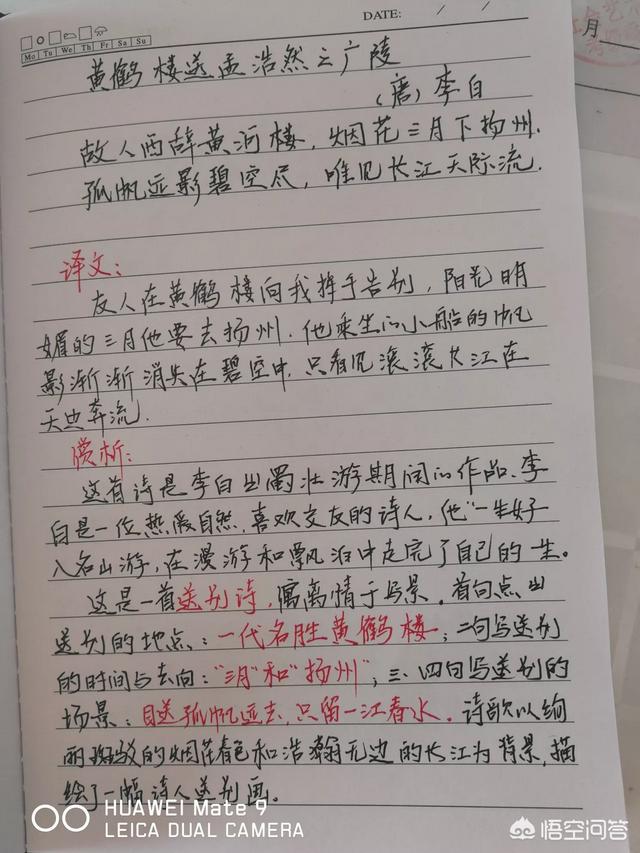 DATE: / /
Mo Tu We Th Fr Sa Su
月
黄鹤楼送孟浩然之广陵
（唐）李白
故人西辞黄河楼，烟花三月下扬州．
孤帆远影碧空尽，唯见长江天际流．
译文：
友人在黄鹤楼向我挥手告别，阳光明
媚的三月他要去扬州．他乘坐的小船的帆
影渐渐消失在碧空中．只看见滚滚长江在
天边奔流．
赏析：
这首诗是李白出蜀壮游期间的作品．李
白是一位热爱自然．喜欢交友的诗人，他“一生好
入名山游，在漫游和飘泊中走完了自己的一生。
这是一首送别诗，寓离情于写景．首句点出
送别的地点：一代名胜黄鹤楼；二句写送别
的时间与去向：“三月”和“扬州”；三、四句写送别的
场景：目送孤帆远去，只留一江春水．诗歌以绚
丽斑驳的烟花春色和浩瀚无边的长江为背景，描
绘了一幅诗人送别画。
HUAWEI Mate 9
LEICA DUAL CAMERA
悟空问答